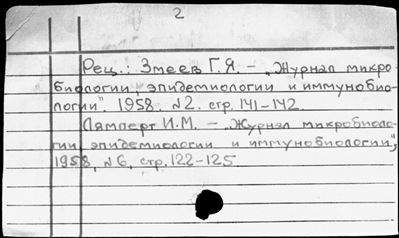 2
Рец.: Змеев Г.Я. – „Журнал микро-
биологии, эпидемиологии и иммунобио-
логии". 1958. №2. стр. 141–142.
Лямперт И.М. – „Журнал микробиоло-
гии, эпидемиологии и иммунобиологии",
1958, №6, стр. 122–125